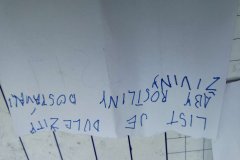 LIST JE DŮLEŽITÝ
ABY ROSTLINY DOSTÁVALI
ŽIVINY